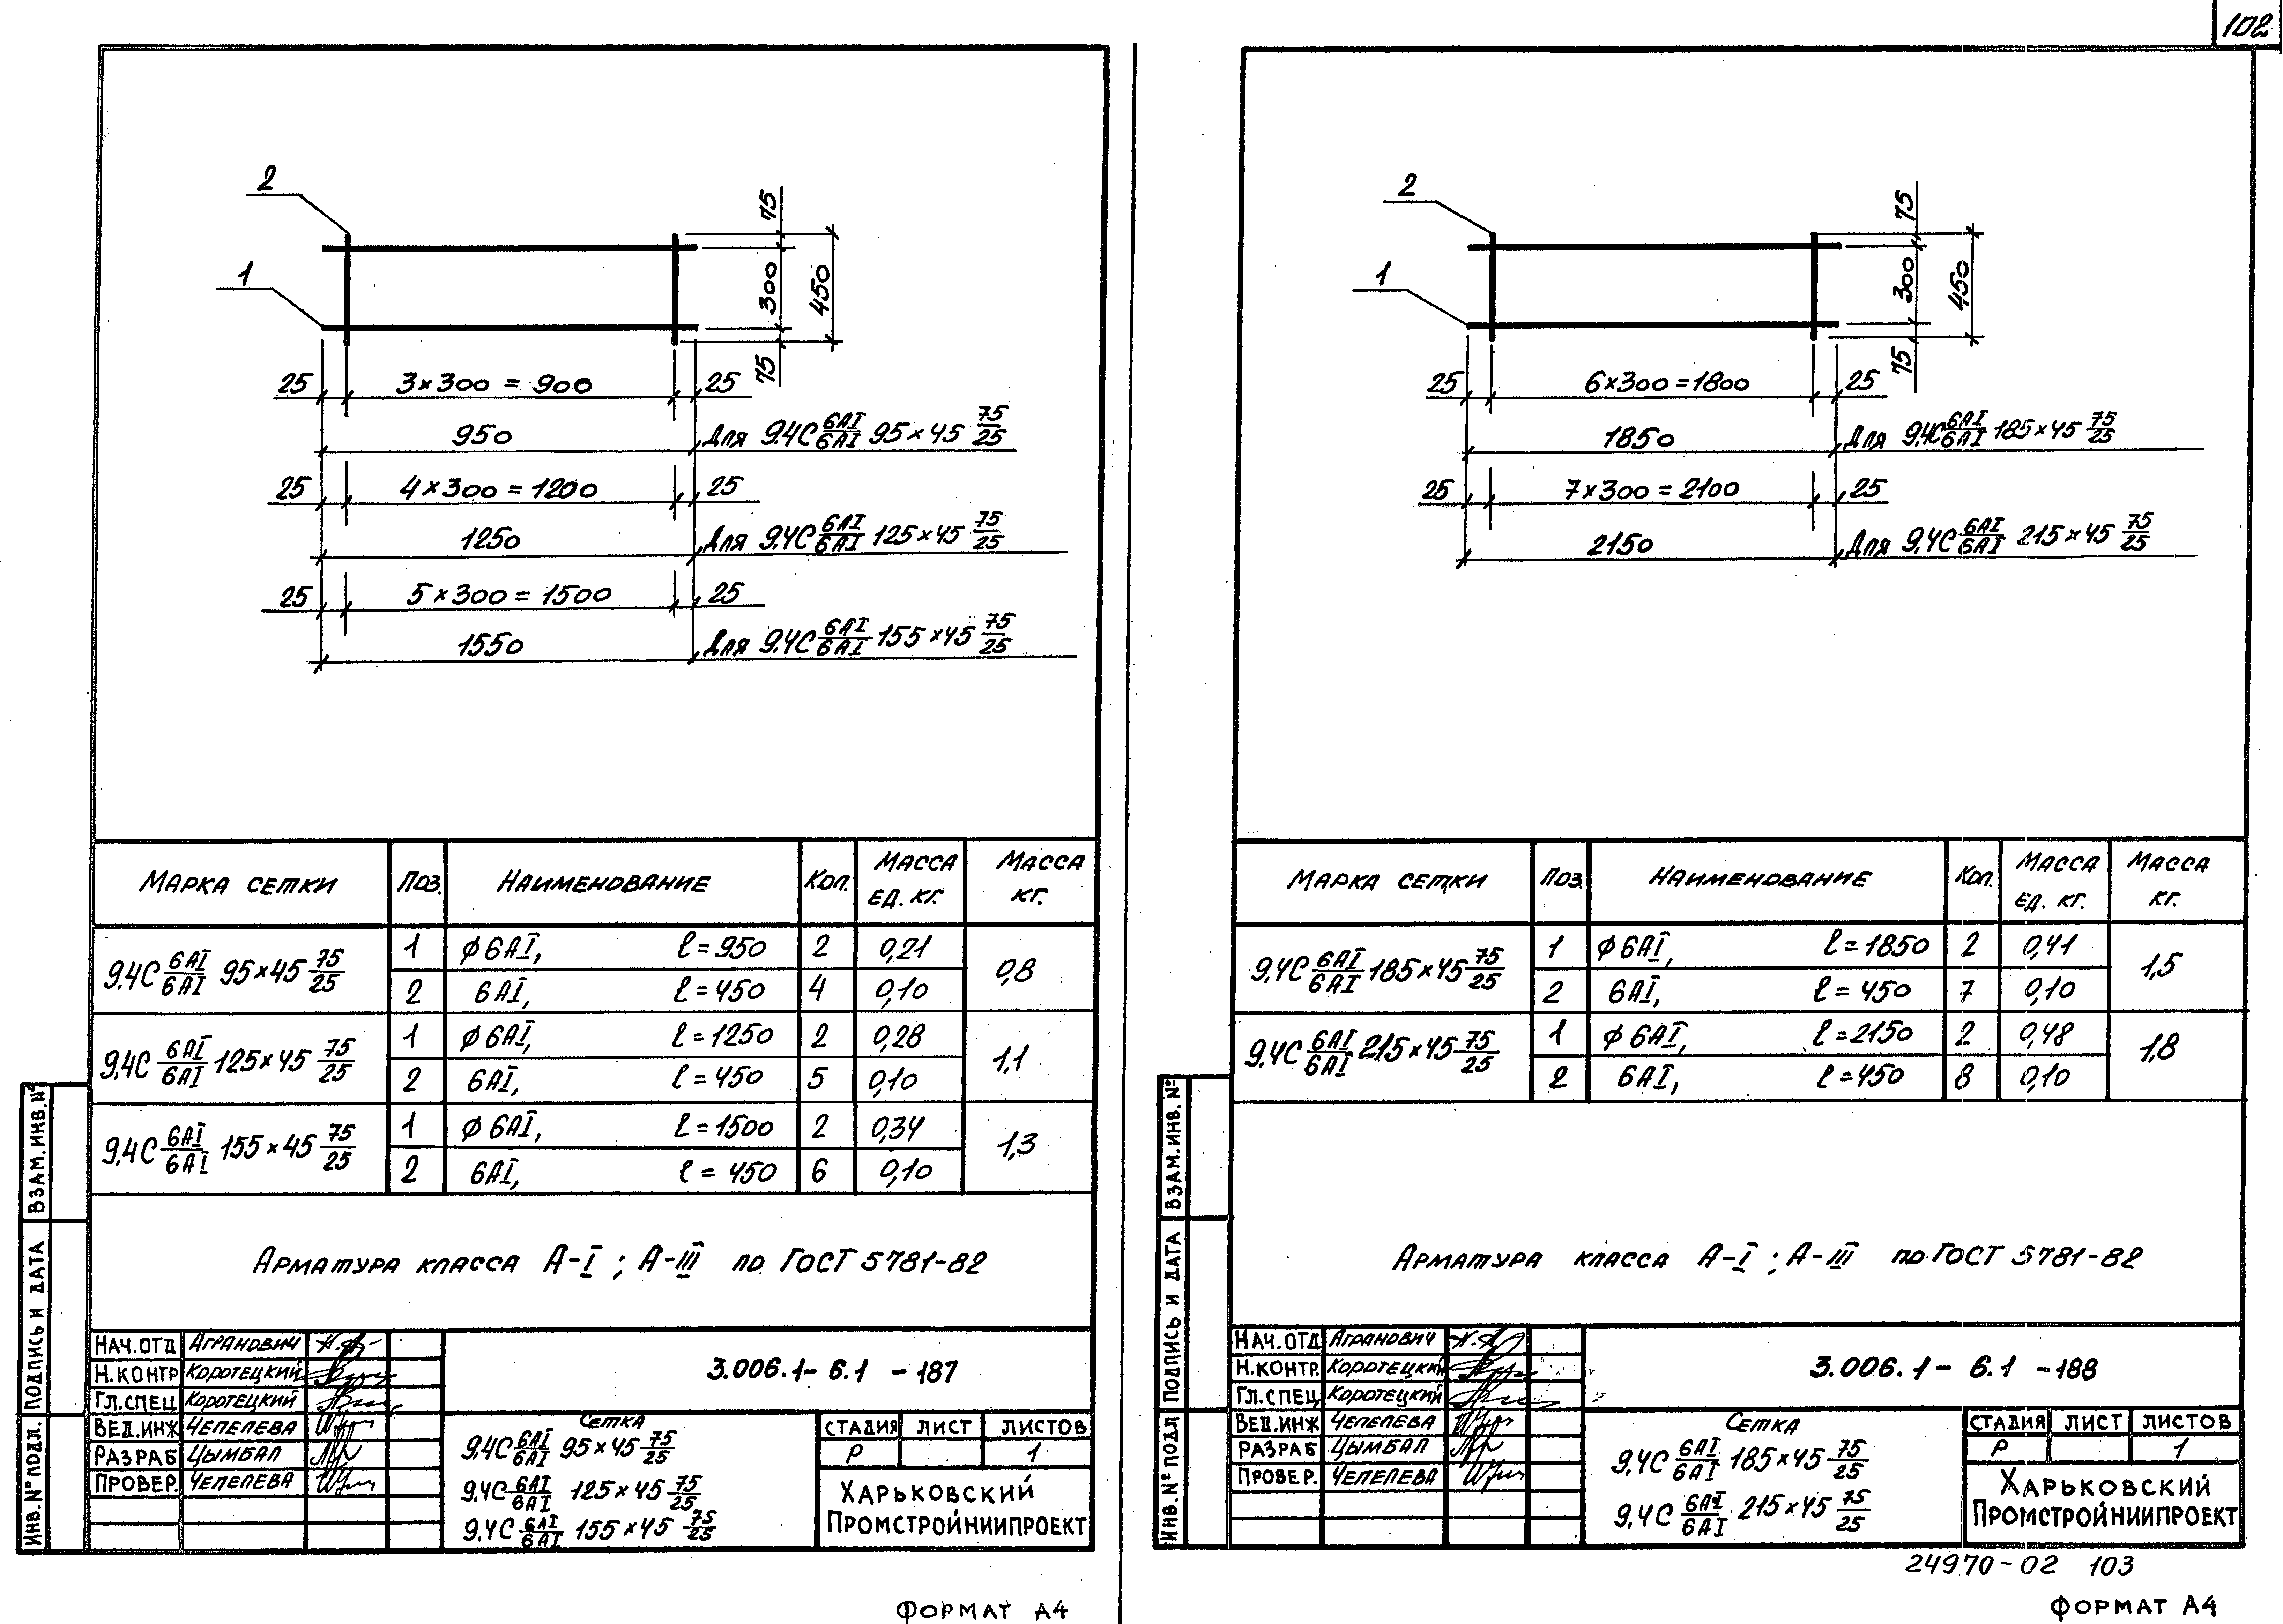 102
2
1
75
300
75
450
25 3×300=900 25
950 Для 9.4С 6АI/6АI 95×45 75/25
25 4×300=1200 25
1250 Для 9.4С 6АI/6АI 125×45 75/25
25 5×300=1500 25
1550 Для 9.4С 6АI/6АI 155×45 75/25
МАРКА СЕТКИ ПОЗ. НАИМЕНОВАНИЕ КОЛ. МАССА ЕД. КГ. МАССА КГ.
9.4С 6АI/6АI 95×45 75/25 1 ф6АI, ℓ=950 2 0,21 0,8
2 6АI, ℓ=450 4 0,10
9.4С 6АI/6АI 125×45 75/25 1 ф6АI, ℓ=1250 2 0,28 1,1
2 6АI, ℓ=450 5 0,10
9.4С 6АI/6АI 155×45 75/25 1 ф6АI, ℓ=1500 2 0,34 1,3
2 6АI, ℓ=450 6 0,10
АРМАТУРА КЛАССА А-I; А-III ПО ГОСТ 5781-82
ВЗАМ.ИНВ.№
ПОДПИСЬ И ДАТА
ИНВ.№ПОДЛ.
НАЧ.ОТД АГРАНОВИЧ
Н.КОНТР КОРОТЕЦКИЙ
ГЛ.СПЕЦ КОРОТЕЦКИЙ
ВЕД.ИНЖ ЧЕПЕЛЕВА
РАЗРАБ ЦЫМБАЛ
ПРОВЕР. ЧЕПЕЛЕВА
3.006.1-6.1-187
СЕТКА
9.4С 6АI/6АI 95×45 75/25
9.4С 6АI/6АI 125×45 75/25
9.4С 6АI/6АI 155×45 75/25
СТАДИЯ ЛИСТ ЛИСТОВ
Р 1
ХАРЬКОВСКИЙ
ПРОМСТРОЙНИИПРОЕКТ
ФОРМАТ А4
2
1
75
300
75
450
25 6×300=1800 25
1850 Для 9.4С 6АI/6АI 185×45 75/25
25 7×300=2100 25
2150 Для 9.4С 6АI/6АI 215×45 75/25
МАРКА СЕТКИ ПОЗ. НАИМЕНОВАНИЕ КОЛ. МАССА ЕД. КГ. МАССА КГ.
9.4С 6АI/6АI 185×45 75/25 1 ф6АI, ℓ=1850 2 0,41 1,5
2 6АI, ℓ=450 7 0,10
9.4С 6АI/6АI 215×45 75/25 1 ф6АI, ℓ=2150 2 0,48 1,8
2 6АI, ℓ=450 8 0,10
АРМАТУРА КЛАССА А-I; А-III ПО ГОСТ 5781-82
ВЗАМ.ИНВ.№
ПОДПИСЬ И ДАТА
ИНВ.№ПОДЛ
НАЧ.ОТД АГРАНОВИЧ
Н.КОНТР. КОРОТЕЦКИЙ
ГЛ.СПЕЦ КОРОТЕЦКИЙ
ВЕД.ИНЖ ЧЕПЕЛЕВА
РАЗРАБ ЦЫМБАЛ
ПРОВЕР. ЧЕПЕЛЕВА
3.006.1-6.1-188
СЕТКА
9.4С 6АI/6АI 185×45 75/25
9.4С 6АI/6АI 215×45 75/25
СТАДИЯ ЛИСТ ЛИСТОВ
Р 1
ХАРЬКОВСКИЙ
ПРОМСТРОЙНИИПРОЕКТ
24970-02 103
ФОРМАТ А4